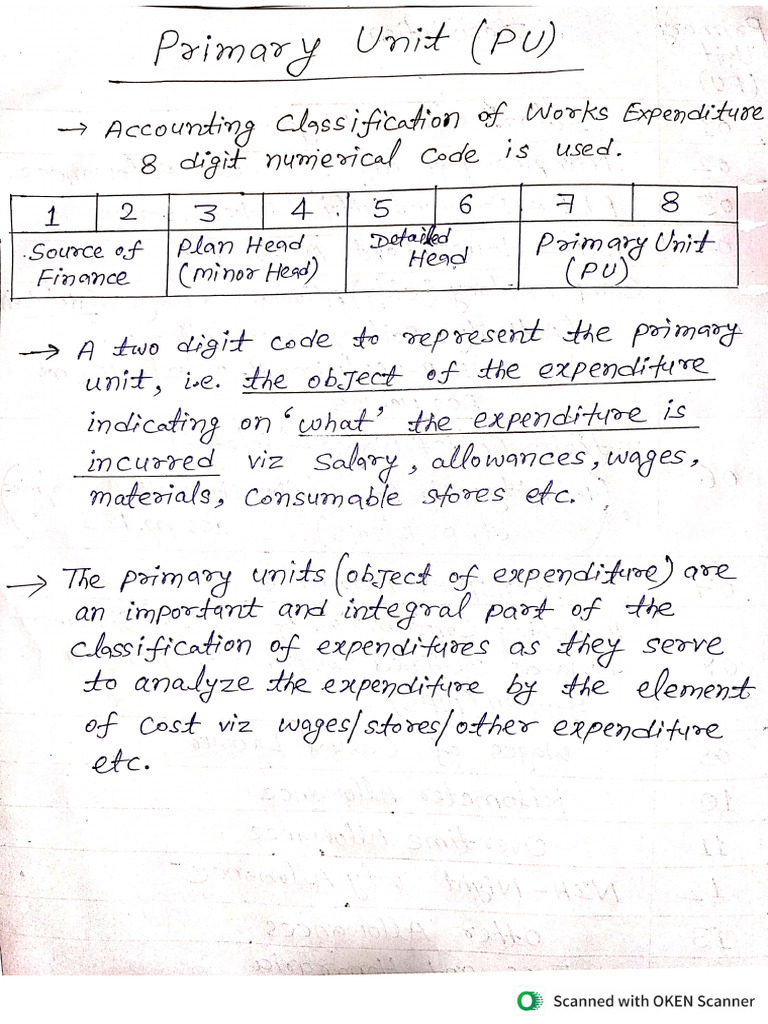 Primary Unit (PU)
→ Accounting Classification of Works Expenditure
8 digit numerical code is used.
1 2 3 4 5 6 7 8
Source of Finance Plan Head (minor Head) Detailed Head Primary Unit (PU)
→ A two digit code to represent the primary
unit, i.e. the object of the expenditure
indicating on 'what' the expenditure is
incurred viz salary, allowances, wages,
materials, consumable stores etc.
→ The primary units (object of expenditure) are
an important and integral part of the
classification of expenditures as they serve
to analyze the expenditure by the element
of cost viz wages/stores/other expenditure
etc.
10 Kilometer Allowance
11 Overtime Allowance
12 Night
13 Other Allowances
Scanned with OKEN Scanner